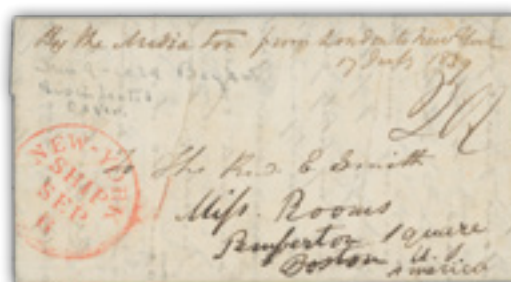 By the Mediator from London to New York
17 July 1839
20
NEW-YORK
SHIP
SEP
6
To The Revd. E Smith
Miss. Rooms
Pemberton Square
Boston U. S.
America